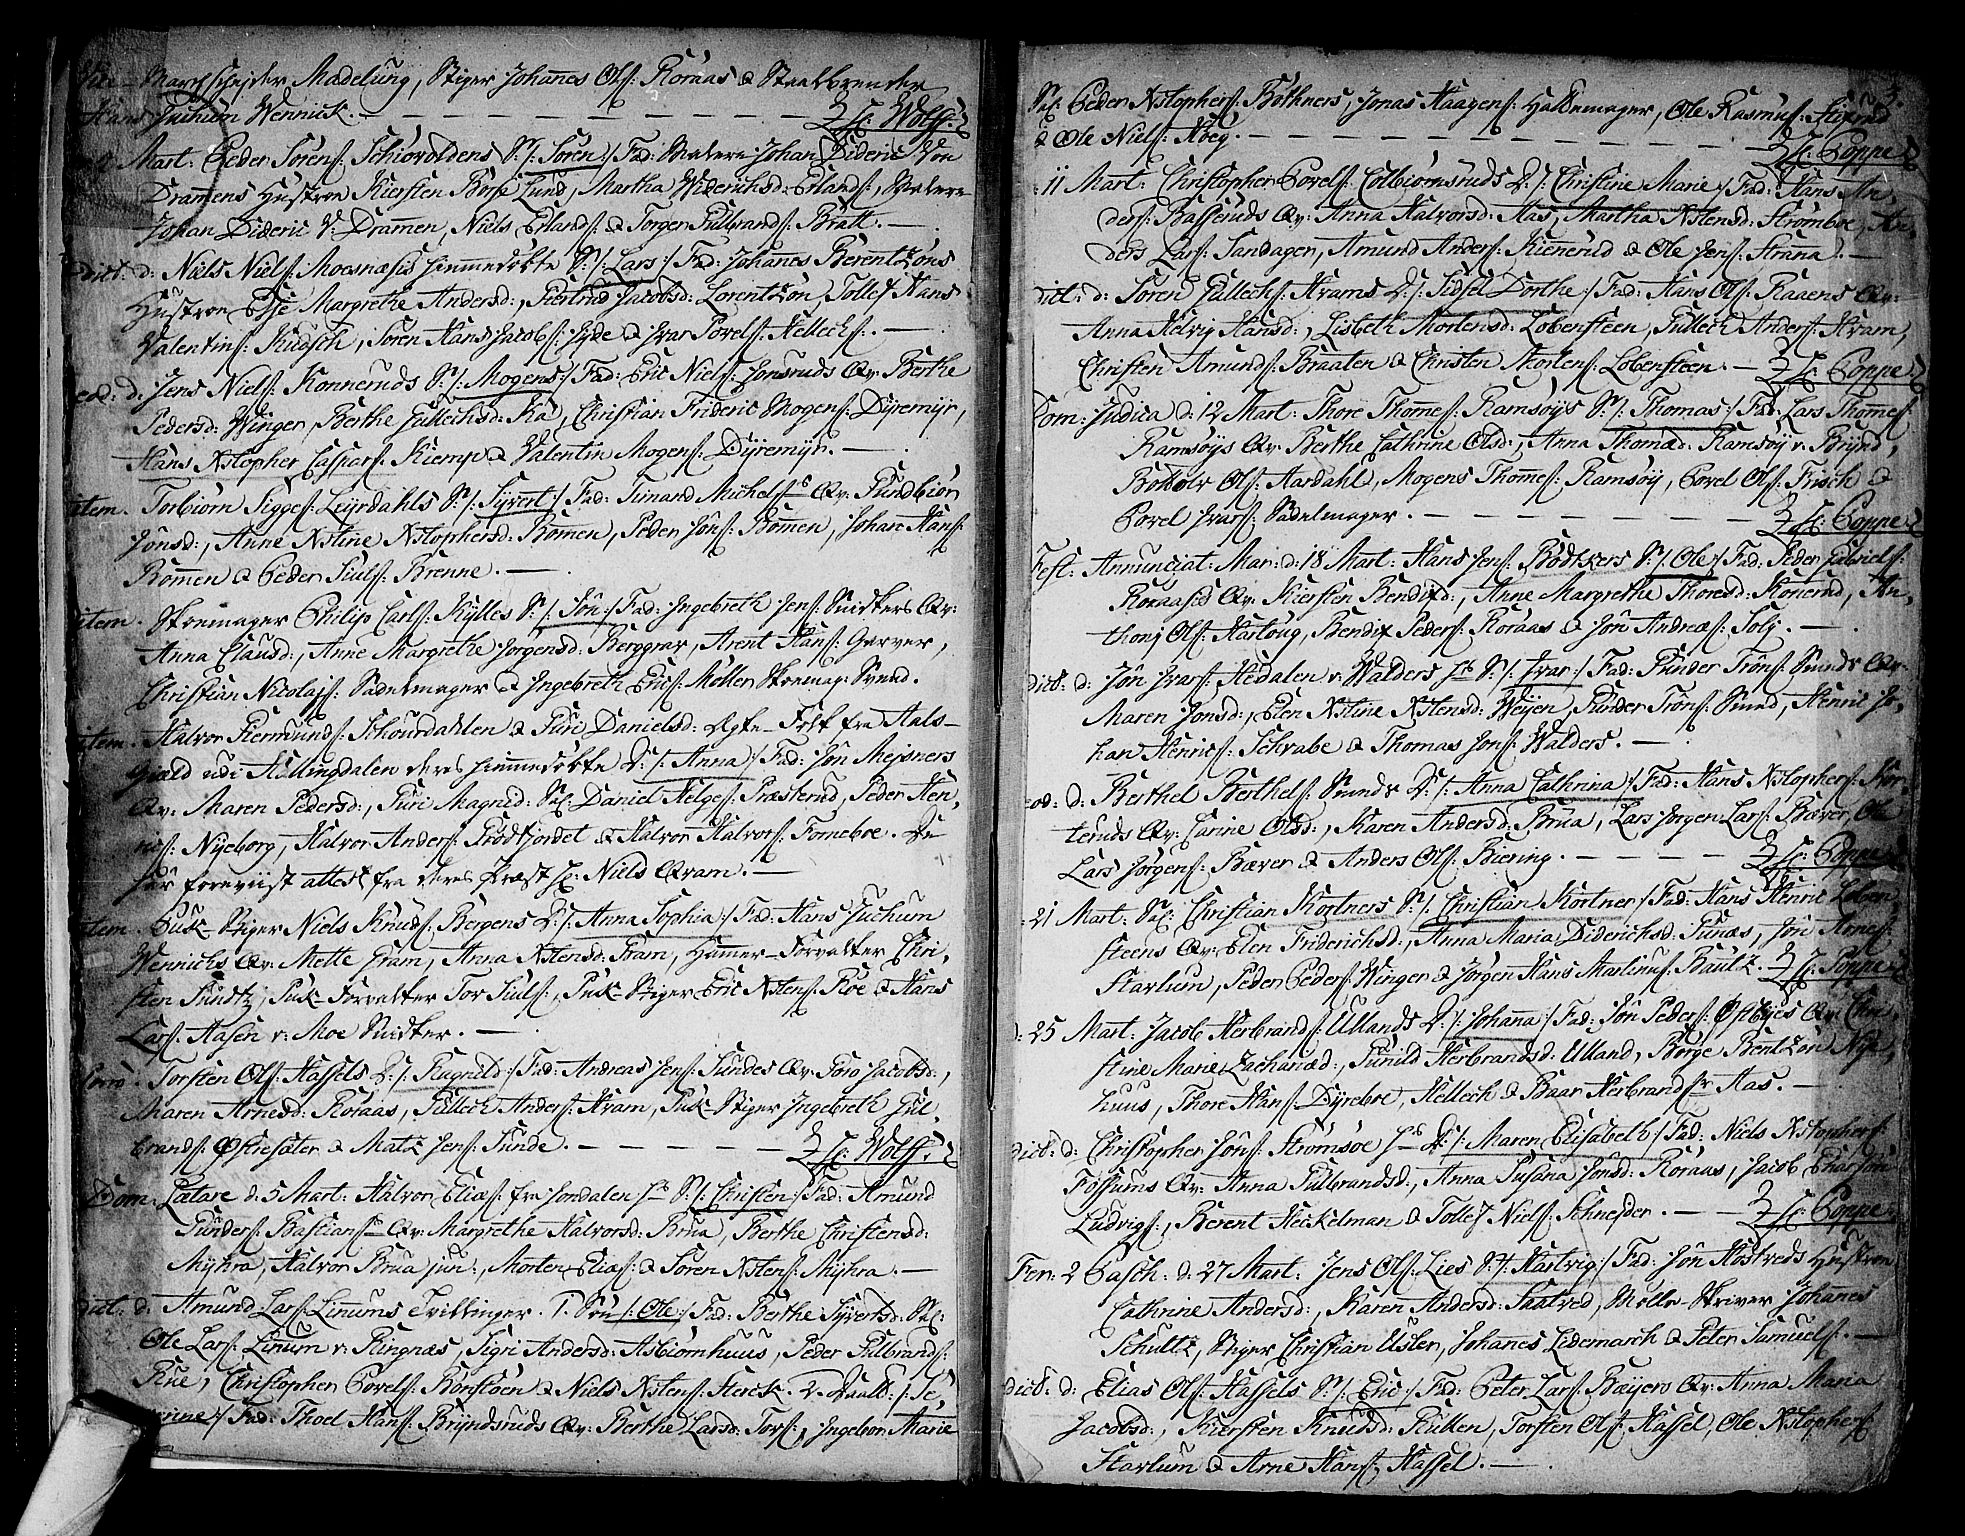 Vice-Marchscheider Madelung, Stiger Johannes Ols: Roraas & Staalbrender
Hans Juchum Wennich. — Hr: Wolff.
Mart: Peder Sörens: Schiorvoldens S: /: Sören :/ Fad: Johan Dideric Von
Drammens Hustroe Kiersten Borse Lund, Martha Widerichsd: Erlands:,
Johan Dideric V: Drammen, Niels Erlands: & Torger Gulbrands: Bratt. —
dict: d: Niels Niels: Moesnæsis hiemmedöbte S: /: Lars :/ Fad: Johannes Berentzöns
Hustroe Else Margrethe Andersd:, Giertrud Jacobsd: Lorentzön, Tollef Hans:
Valentins: Kudsch, Sören Hans: Jacobs: Hyde & Ivar Povels: Hellechs:. —
eod: d: Jens Niels: Konneruds S: /: Mogens :/ Fad: Eric Niels: Jonsruds Qv: Berthe
Pedersd: Winger, Berthe Gullechsd: Ra, Christian Frideric Mogens: Dyremyr,
Hans Xstopher Caspars: Kiempe & Valentin Mogens: Dyremyr. —
item. Torbiörn Sigges: Leyrdahls S: /: Syvert :/ Fad: Simand Michels: Qv: Gundbiör
Jönsd:, Anne Xstine Xstophersd: Bömen, Peder Jöns: Bömen, Johan Hans:
Bömen & Peder Siuls: Brenne. —
item. Skomager Philip Carls: Hylles S: /: Jön :/ Fad: Ingebreth Jens: Snidkers Qv:
Anna Clausd:, Anne Margrethe Jörgensd: Berggrav, Arent Hans: Garver,
Christian Nicolajs: Sadelmager & Ingebreth Erics: Möller Skomag: Svend.
item. Halvor Germunds: Schourdahlen & Guri Danielsd: Ægte-Folk fra Aals-
Gield udi Hallingdalen deres hiemmedöbte D: /: Anna :/ Fad: Jön Meisners
Qv: Maren Pedersd:, Guri Magned: S: Daniel Helges: Præsterud, Peder Hen-
rics: Nyeborg, Halvor Anders: Rödkjordet & Halvor Halvors: Forneboe. De
har foreviist attest fra deres Præst Hr: Niels Qvam. —
item. Puk-Stiger Niels Knuds: Bergens D: /: Anna Sophia :/ Fad: Hans Juchum
Wennichs Qv: Mette Gram, Anna Xstensd: Fram, Hammer-Forvalter Chri-
sten Sundtz, Puk-Forvalter Tor Siuls:, Puk-Stiger Eric Xstens: Roe & Hans
Lars: Aasen v: Moe Snidker. —
Torsten Ols: Hassels D: /: Ragnild :/ Fad: Andreas Jens: Sundes Qv: Goro Jacobsd:,
Maren Arnesd: Roraas, Gullech Anders: Hram, Puk-Stiger Ingebreth Gul-
brands: Östresæter & Matz Jens: Sunde. — Hr: Wolff.
Dom: Lætare d: 5 Mart: Halvor Elias: fra Jondalen S: /: Christen :/ Fad: Amund
Gunders: Bastians: Qv: Margrethe Halvorsd: Brua, Berthe Christensd:
Myhra, Halvor Brua jun:, Morten Elias: & Sören Xstens: Myhra. —
dict: d: Amund Lars: Linnums Tvillinger. 1. Sön /: Ole :/ Fad: Berthe Syvertsd: S:
Ole Lars: Linum v: Ringnæs, Sigri Andersd: Asbiörnhuus, Peder Gulbrands:
Rue, Christopher Povels: Bönsloen & Niels Xstens: Sterck. 2. Datt: /: Se-
verine :/ Fad: Thoel Hans: Bryndsruds Qv: Berthe Larsd: Tors:, Ingebor Marie
3.
S: Peder Xstophers: Böthners, Jonas Haagens: Hattemager, Ole Rasmus: Stixrud
& Ole Niels: Hoeg. — Hr: Poppe
11 Mart: Christopher Povels: Colbiörnsruds D: /: Christine Marie :/ Fad: Hans An-
ders: Basseruds Qv: Anna Halvorsd: Aas, Martha Xstensd: Strömboe, An-
ders Lars: Sandager, Amund Anders: Kiennerud & Ole Jens: Strana. —
dict: d: Sören Gullechs: Hrams D: /: Sidsel Dorthe :/ Fad: Hans Ols: Raaens Qv:
Anna Helvig Hansd:, Lisbeth Mortensd: Löbensteen, Gullech Anders: Hram,
Christen Amunds: Braaten & Christen Mortens: Löbensteen. — Hr: Poppe
Dom: Judica d: 12 Mart: Thore Thomes: Ramsöys S: /: Thomas :/ Fad: Lars Thomes:
Ramsöys Qv: Berthe Cathrine Olsd:, Anna Thomæd: Ramsöy v: Brynd,
Bottolv Ols: Aardahl, Mogens Thomes: Ramsöy, Povel Ols: Frisch &
Povel Ivars: Sadelmager. — Hr: Poppe
Fest: Annunciat: Mar: d: 18 Mart: Hans Jens: Bödtkers S: /: Ole :/ Fad: Peder Gabriels:
Roraasis Qv: Kiersten Bendixd:, Anne Margrethe Thoresd: Konerud, An-
thonj Ols: Hartoug, Bendix Peders: Roraas & Jön Andreæs: Solj. —
dict: d: Jön Ivars: Hedalen v: Walders S: /: Ivar :/ Fad: Gunder Tröns: Smeds Qv:
Maren Jonsd:, Elen Xstine Xstensd: Weyen, Gunder Tröns: Smed, Henric Jo-
han Henrics: Schrabe & Thomas Jons: Walders. —
eod: d: Berthel Berthels: Smeds D: /: Anna Cathrina :/ Fad: Hans Xstophers: Kor-
teruds Qv: Carine Olsd:, Karen Andersd: Brua, Lars Jörgen Lars: Bæver, Ole
Lars: Jörgens: Bæver & Anders Ols: Biering. — Hr: Poppe
21 Mart: S: Christian Kortners S: /: Christian Kortner :/ Fad: Hans Henric Löben-
steens Qv: Elen Friderichsd:, Anna Maria Diderichsd: Funæs, Jön Arnes:
Starlum, Peder Peders: Winger & Jörgen Hans Martinus: Bautz. Hr: Poppe
d: 25 Mart: Jacob Herbrands: Ullands D: /: Johanna :/ Fad: Jön Peders: Östbyes Qv: Chri-
stine Marie Zachariæd:, Gunild Herbrandsd: Ulland, Börge Bentzon
huus, Thore Hans: Dyreboe, Hellech & Baar Herbrands: Aas. —
dict: d: Christopher Jöns: Strömsöe D: /: Maren Elisabeth :/ Fad: Niels Xstophers:
Fossums Qv: Anna Gulbrandsd:, Anna Susana Jönsd: Roraas, Jacob
Ludvigs:, Berent Heckelman & Tollef Niels: Schneider. — Hr: Poppe
Fer: 2 Pasch: d: 27 Mart: Jens Ols: Lies S: /: Hartvig :/ Fad: Jön Hostveds Hustroe
Cathrine Andersd:, Karen Andersd: Saatved, Mölle-Skriver Johanes
Schultz, Stiger Christian Usler, Johanes Ledemarch & Peter Samuels:. —
dict: d: Elias Ols: Hassels S: /: Eric :/ Fad: Peter Lars: Bayers Qv: Anna Maria
Jacobsd:, Kiersten Knudsd: Ruken, Torsten Ols: Hassel, Ole Xstophers:
Starlum & Arne Hans: Hassel. —